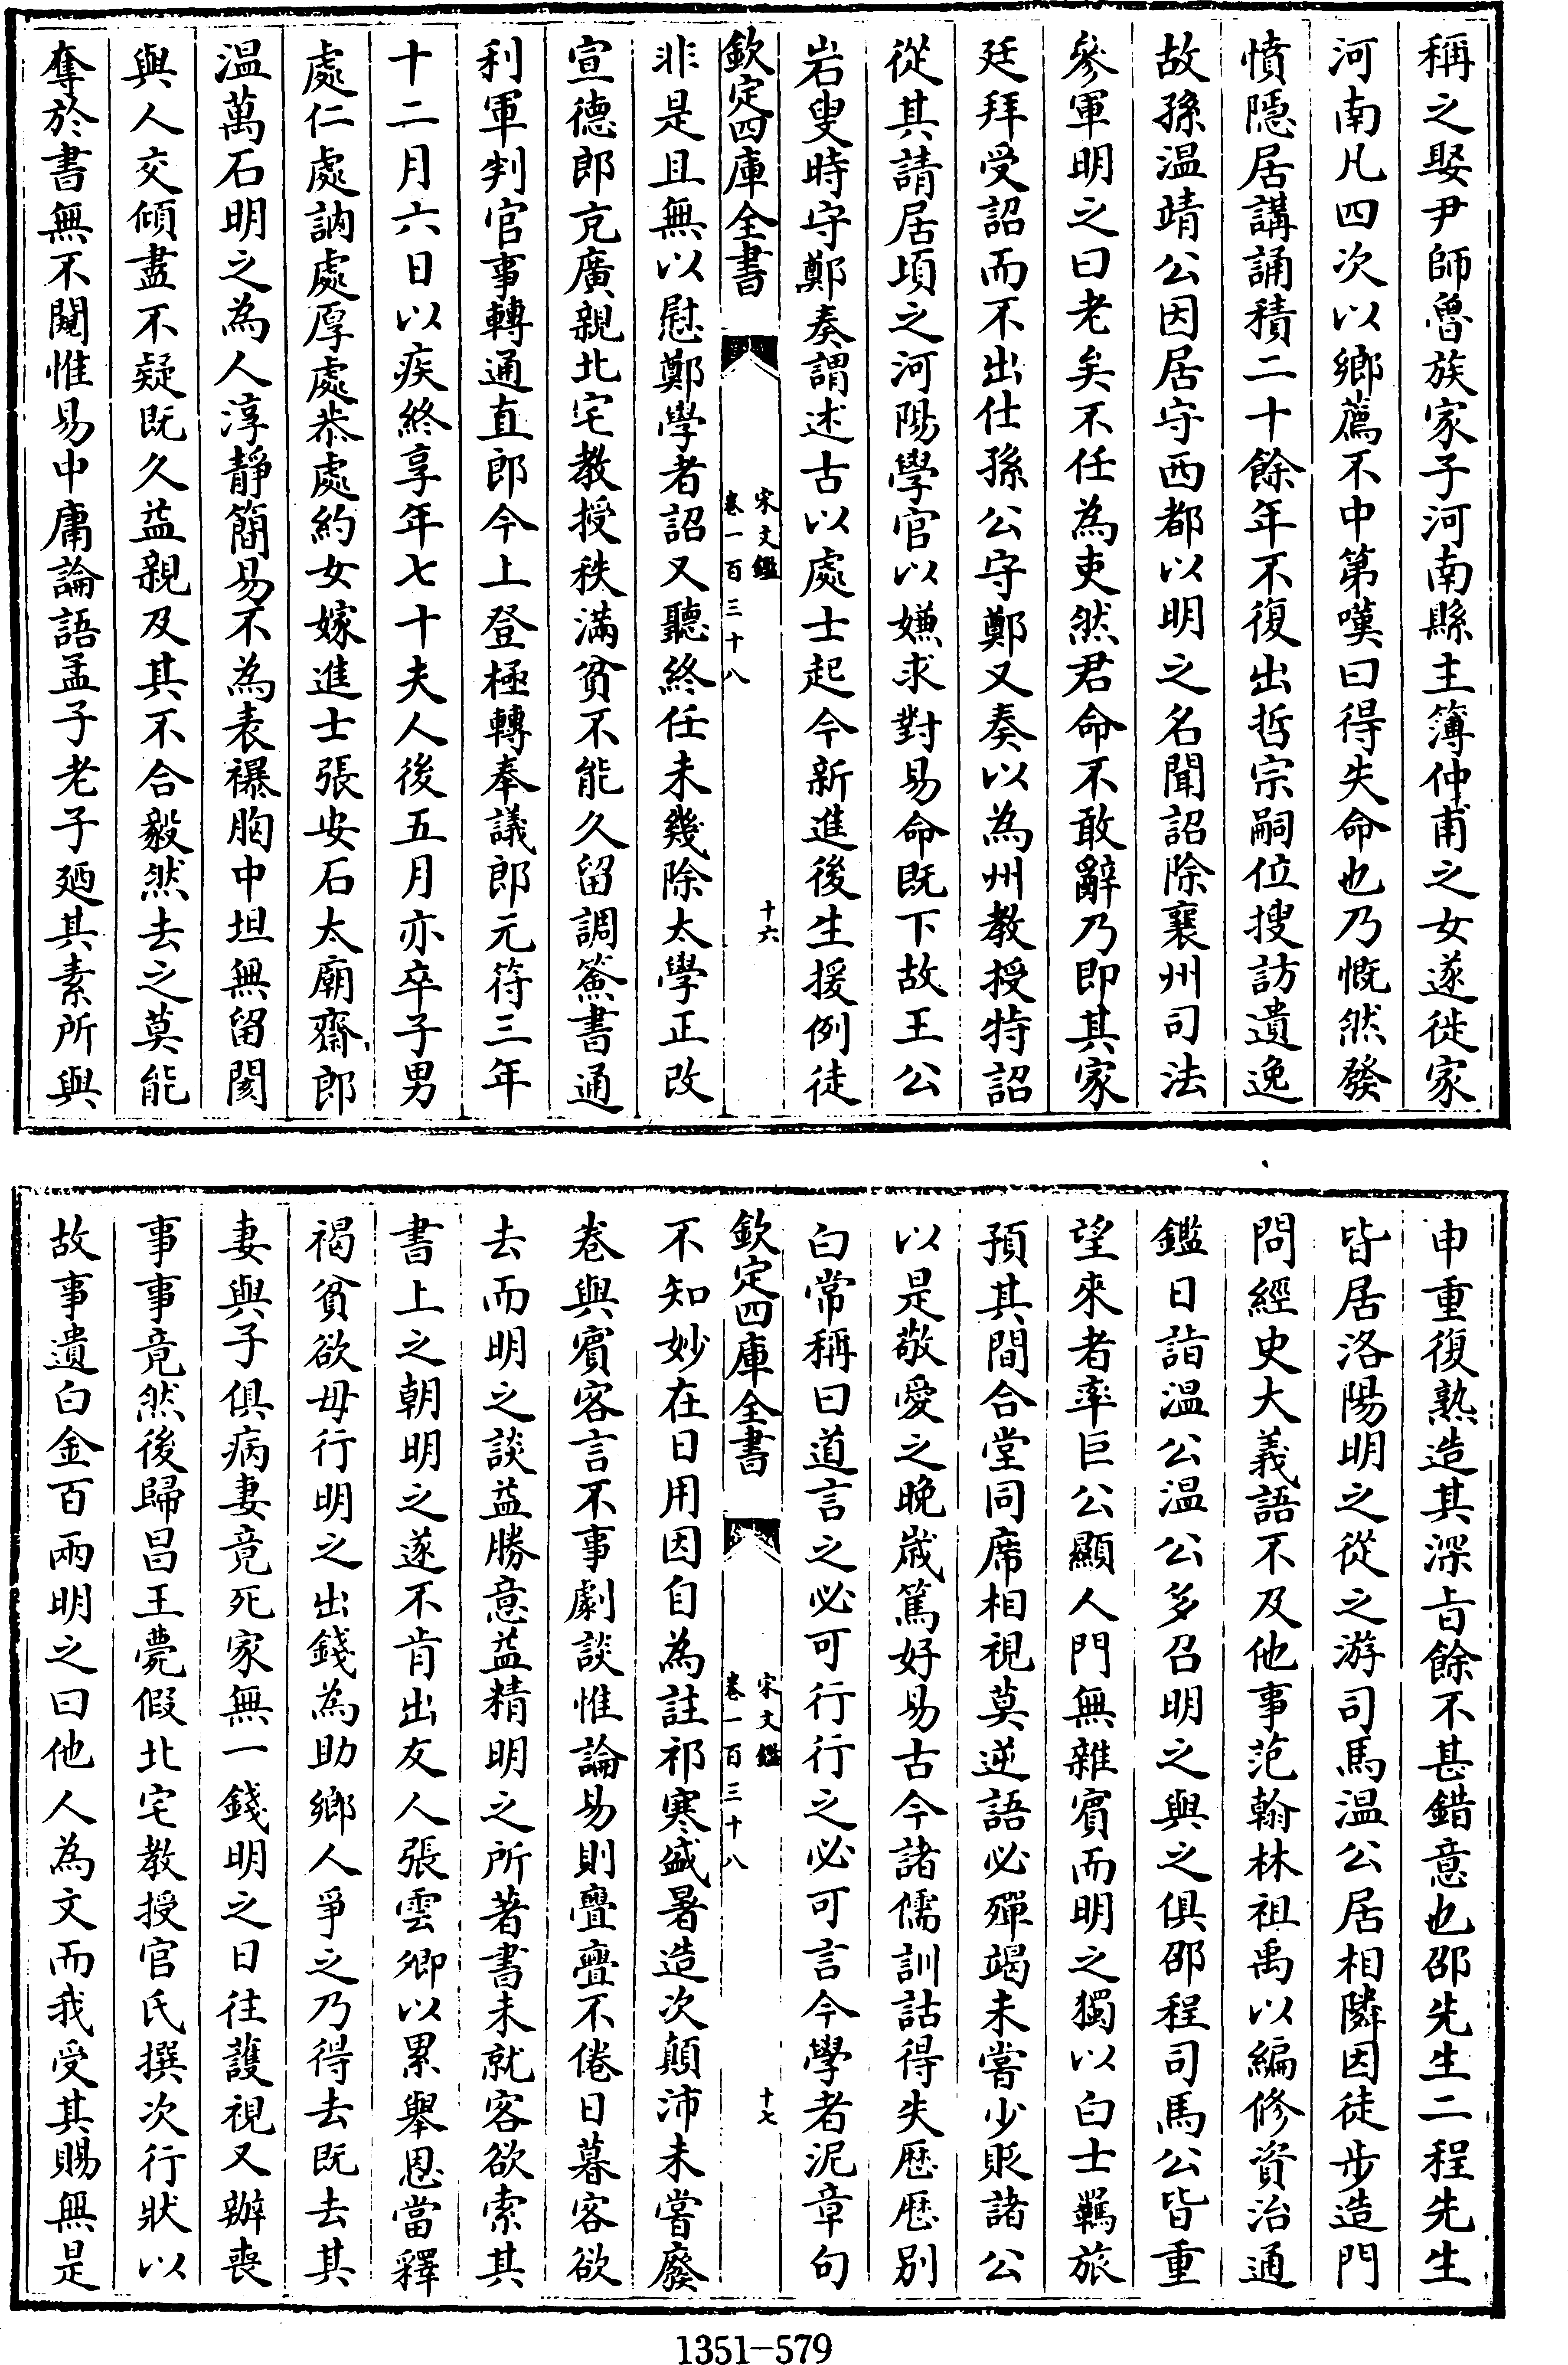 稱之娶尹師魯族家子河南縣主簿仲甫之女遂徙家
河南凡四次以鄉薦不中第嘆曰得失命也乃慨然發
憤隱居講誦積二十餘年不復出哲宗嗣位搜訪遺逸
故孫温靖公因居守西都以明之名聞詔除襄州司法
參軍明之曰老矣不任為吏然君命不敢辭乃即其家
廷拜受詔而不出仕孫公守鄭又奏以為州教授特詔
從其請居頃之河陽學官以嫌求對易命既下故王公
岩叟時守鄭奏謂述古以處士起今新進後生援例徒
欽定四庫全書
宋文鑑
卷一百三十八
十六
非是且無以慰鄭學者詔又聽終任未幾除太學正改
宣德郎充廣親北宅教授秩滿貧不能久留調簽書通
利軍判官事轉通直郎今上登極轉奉議郎元符三年
十二月六日以疾終享年七十夫人後五月亦卒子男
處仁處訥處厚處恭處約女嫁進士張安石太廟齋郎
温萬石明之為人淳靜簡易不為表襮胸中坦無留閡
與人交傾盡不疑既久益親及其不合毅然去之莫能
奪於書無不闚惟易中庸論語孟子老子廼其素所與
申重復熟造其深旨餘不甚錯意也邵先生二程先生
皆居洛陽明之從之游司馬温公居相隣因徒步造門
問經史大義語不及他事范翰林祖禹以編修資治通
鑑日詣温公温公多召明之與之俱邵程司馬公皆重
望來者率巨公顯人門無雜賓而明之獨以白士羈旅
預其間合堂同席相視莫逆語必殫竭未嘗少貶諸公
以是敬愛之晚嵗篤好易古今諸儒訓詁得失歴歴别
白常稱曰道言之必可行行之必可言今學者泥章句
欽定四庫全書
宋文鑑
卷一百三十八
十七
不知妙在日用因自為註祁寒盛暑造次顛沛未嘗廢
卷與賓客言不事劇談惟論易則亹亹不倦日暮客欲
去而明之談益勝意益精明之所著書未就客欲索其
書上之朝明之遂不肯出友人張雲卿以累舉恩當釋
褐貧欲毋行明之出錢為助鄉人爭之乃得去既去其
妻與子俱病妻竟死家無一錢明之日往護視又辦喪
事事竟然後歸昌王薨假北宅教授官氏撰次行狀以
故事遺白金百兩明之曰他人為文而我受其賜無是
1351-579